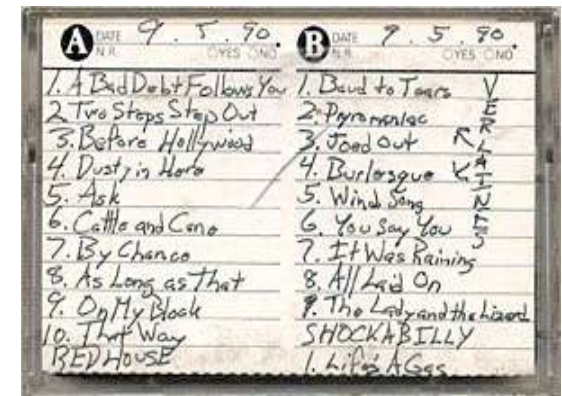 A DATE 9.5.90.
N.R. YES NO
1. A Bad Debt Follows You
2. Two Steps Step Out
3. Before Hollywood
4. Dusty in Here
5. Ask
6. Cattle and Cane
7. By Chance
8. As Long as That
9. On My Block
10. That Way
RED HOUSE
B DATE 9.5.90.
N.R. YES NO
1. Baud to Tears
2. Pyromaniac
3. Joed Out
4. Burlesque
5. Wind Song
6. You Say You
7. It Was Raining
8. All Laid On
9. The Lady and the Lizard
SHOCKABILLY
1. Life's A Gas
VERLAINES